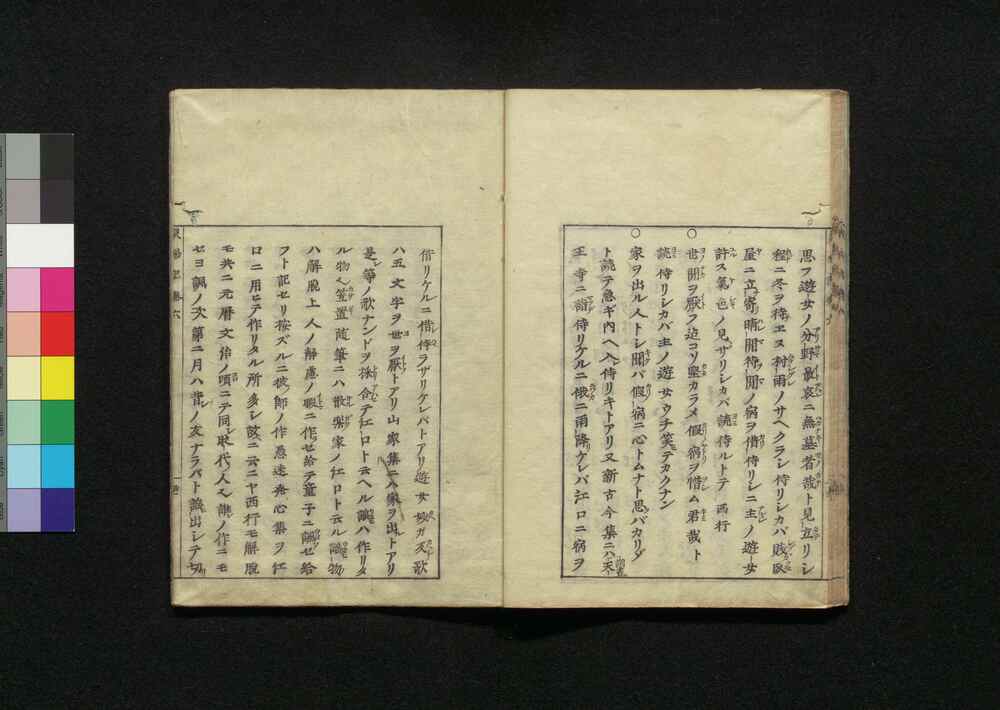 思フ遊女ノ分野最哀ニ無墓者哉ト見立リシ
程ニ冬ヲ待エス村雨ノサヘクラシ侍リシカバ賎
屋ニ立寄晴間待ツ間ノ宿ヲ借侍リシニ主ノ遊女
許ス氣色ノ見ザリシカバ読侍ルトテ 西行
○世ノ間ヲ厭フ迠コソ堅カラメ假ノ宿ヲ惜ム君哉ト
読侍リシカバ主ノ遊女ウチ笑テカクナン
○家ヲ出ル人トシ聞バ假ノ宿ニ心トムナト思バカリゾ
ト読テ急ギ内ヘ入侍リキトアリ又新古今集ニハ天
王寺ニ詣侍リケルニ俄ニ雨降ケレバ江口ニ宿ヲ
借リケルニ借侍ラザリケレバトアリ遊女妙ガ歌
ハ五文字ヲ世ヲ厭トアリ山家集ニハ家ヲ出トアリ
是等ノ歌ナンドヲ採合テ江口ト云ヘル謡ハ作リタ
ル物也笠置随筆ニハ散樂家ノ江口ト云ル謡物
ハ解脱上人ノ解慮ノ暇ニ作セ給テ童子ニ謡セ給
フト記セリ按ズルニ彼師ノ作愚迷発心集ヲ江
口ニ用ヒテ作リタル所多シ故ニ云ニヤ西行モ解脱
モ共ニ元暦文治ノ頃ニテ同時代ノ人也誰ノ作ニモ
セヨ謡ノ次第ニ月ハ昔ノ友ナラバト謡出シテ切